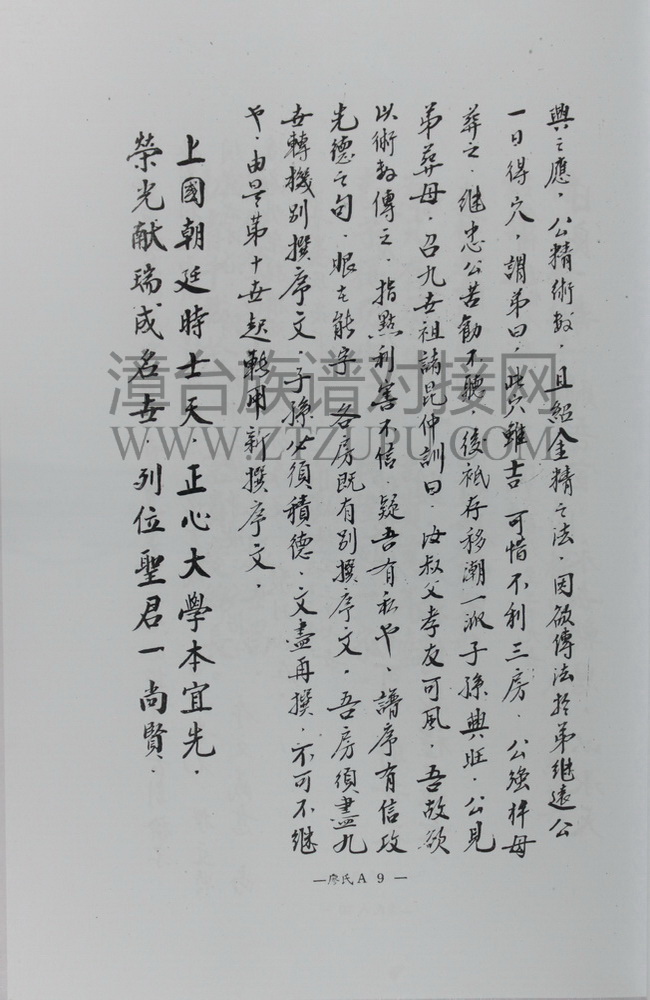 興之應．公精術数，且紹金精之法．因欲傳法於弟継遠公
一日得穴，謂弟曰．此穴雖吉 可惜不利三房．公強梓母
葬之．継忠公苦勸不聽．後祇存移潮一派子孫興旺．公見
弟葬母．召九世祖諸昆仲訓曰．汝叔父孝友可風．吾故欲
以術数傳之．指點利害不信．疑吾有私也、譜序有信政
光德之句．眼 能字 各房既有別撰序文．吾房須盡九
世轉機別撰序文．子孫必須積德．文盡再撰．不可不継
也．由是第十世起輒用新撰序文．
上國朝廷時士天．正心大學本宜先．
榮光献瑞成名世．列位聖君一尚賢．
漳台族谱对接网
WWW.ZTZUPU.COM
—廖氏A 9 —